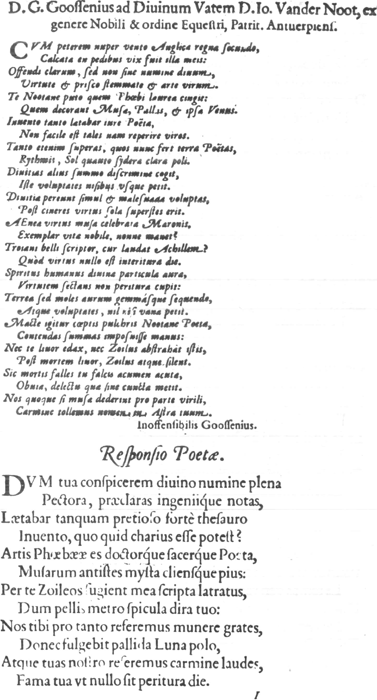 D. G. Goossenius ad Diuinum Vatem D. Io. Vander Noot, ex
genere Nobili & ordine Equestri, Patrit. Antuerpiens.
CVM peterem nuper vento Anglica regna secundo,
Calcata en pedibus vix fuit illa meis:
Offendi clarum, sed non sine numine diuum,
Virtute & prisco stemmate & arte virum.
Te Nootane puto quem Phœbi laurea cingit:
Quem decorant Musæ, Pallas, & ipsa Venus.
Inuento tanto lætabar iure Poëta,
Non facile est tales nam reperire viros.
Tanto etenim superas, quos nunc fert terra Poëtas,
Rythmis, Sol quanto sydera clara poli.
Diuitias alius summo discrimine cogit,
Iste voluptates nisibus vsque petit.
Diuitiæ pereunt simul & malesuada voluptas,
Post cineres virtus sola superstes erit.
AEneæ virtus musa celebrata Maronis,
Exemplar vitæ nobile, nonne manet?
Troiani belli scriptor, cur laudat Achillem?
Quòd virtus nullo est interitura die.
Spiritus humanus diuinæ particula auræ,
Virtutem sectans non peritura cupit:
Terrea sed moles aurum gemmásque sequendo,
Atque voluptates, nil nisi vana petit.
Macte igitur cœptis pulchris Nootane Poeta,
Contendas summas imposuisse manus:
Nec te liuor edax, nec Zoilus abstrahat istis,
Post mortem liuor, Zoilus atque silent.
Sic mortis falles tu falcis acumen acutæ,
Obuia, delectu quæ sine cuncta metit.
Nos quoque si musæ dederint pro parte virili,
Carmine tollemus nomen in Astra tuum.
Inoffensibilis Goossenius.
Responsio Poetæ.
DVM tua conspicerem diuino numine plena
Pectora, præclaras ingeniique notas,
Lætabar tanquam pretioso fortè thesauro
Inuento, quo quid charius esse potest?
Artis Phœbææ es doctorque sacerque Poeta,
Musarum antistes mysta cliensque pius:
Per te Zoileos fugient mea scripta latratus,
Dum pellis metro spicula dira tuo:
Nos tibi pro tanto referemus munere grates,
Donec fulgebit pallida Luna polo,
Atque tuas nostro referemus carmine laudes,
Fama tua vt nullo sit peritura die.
I